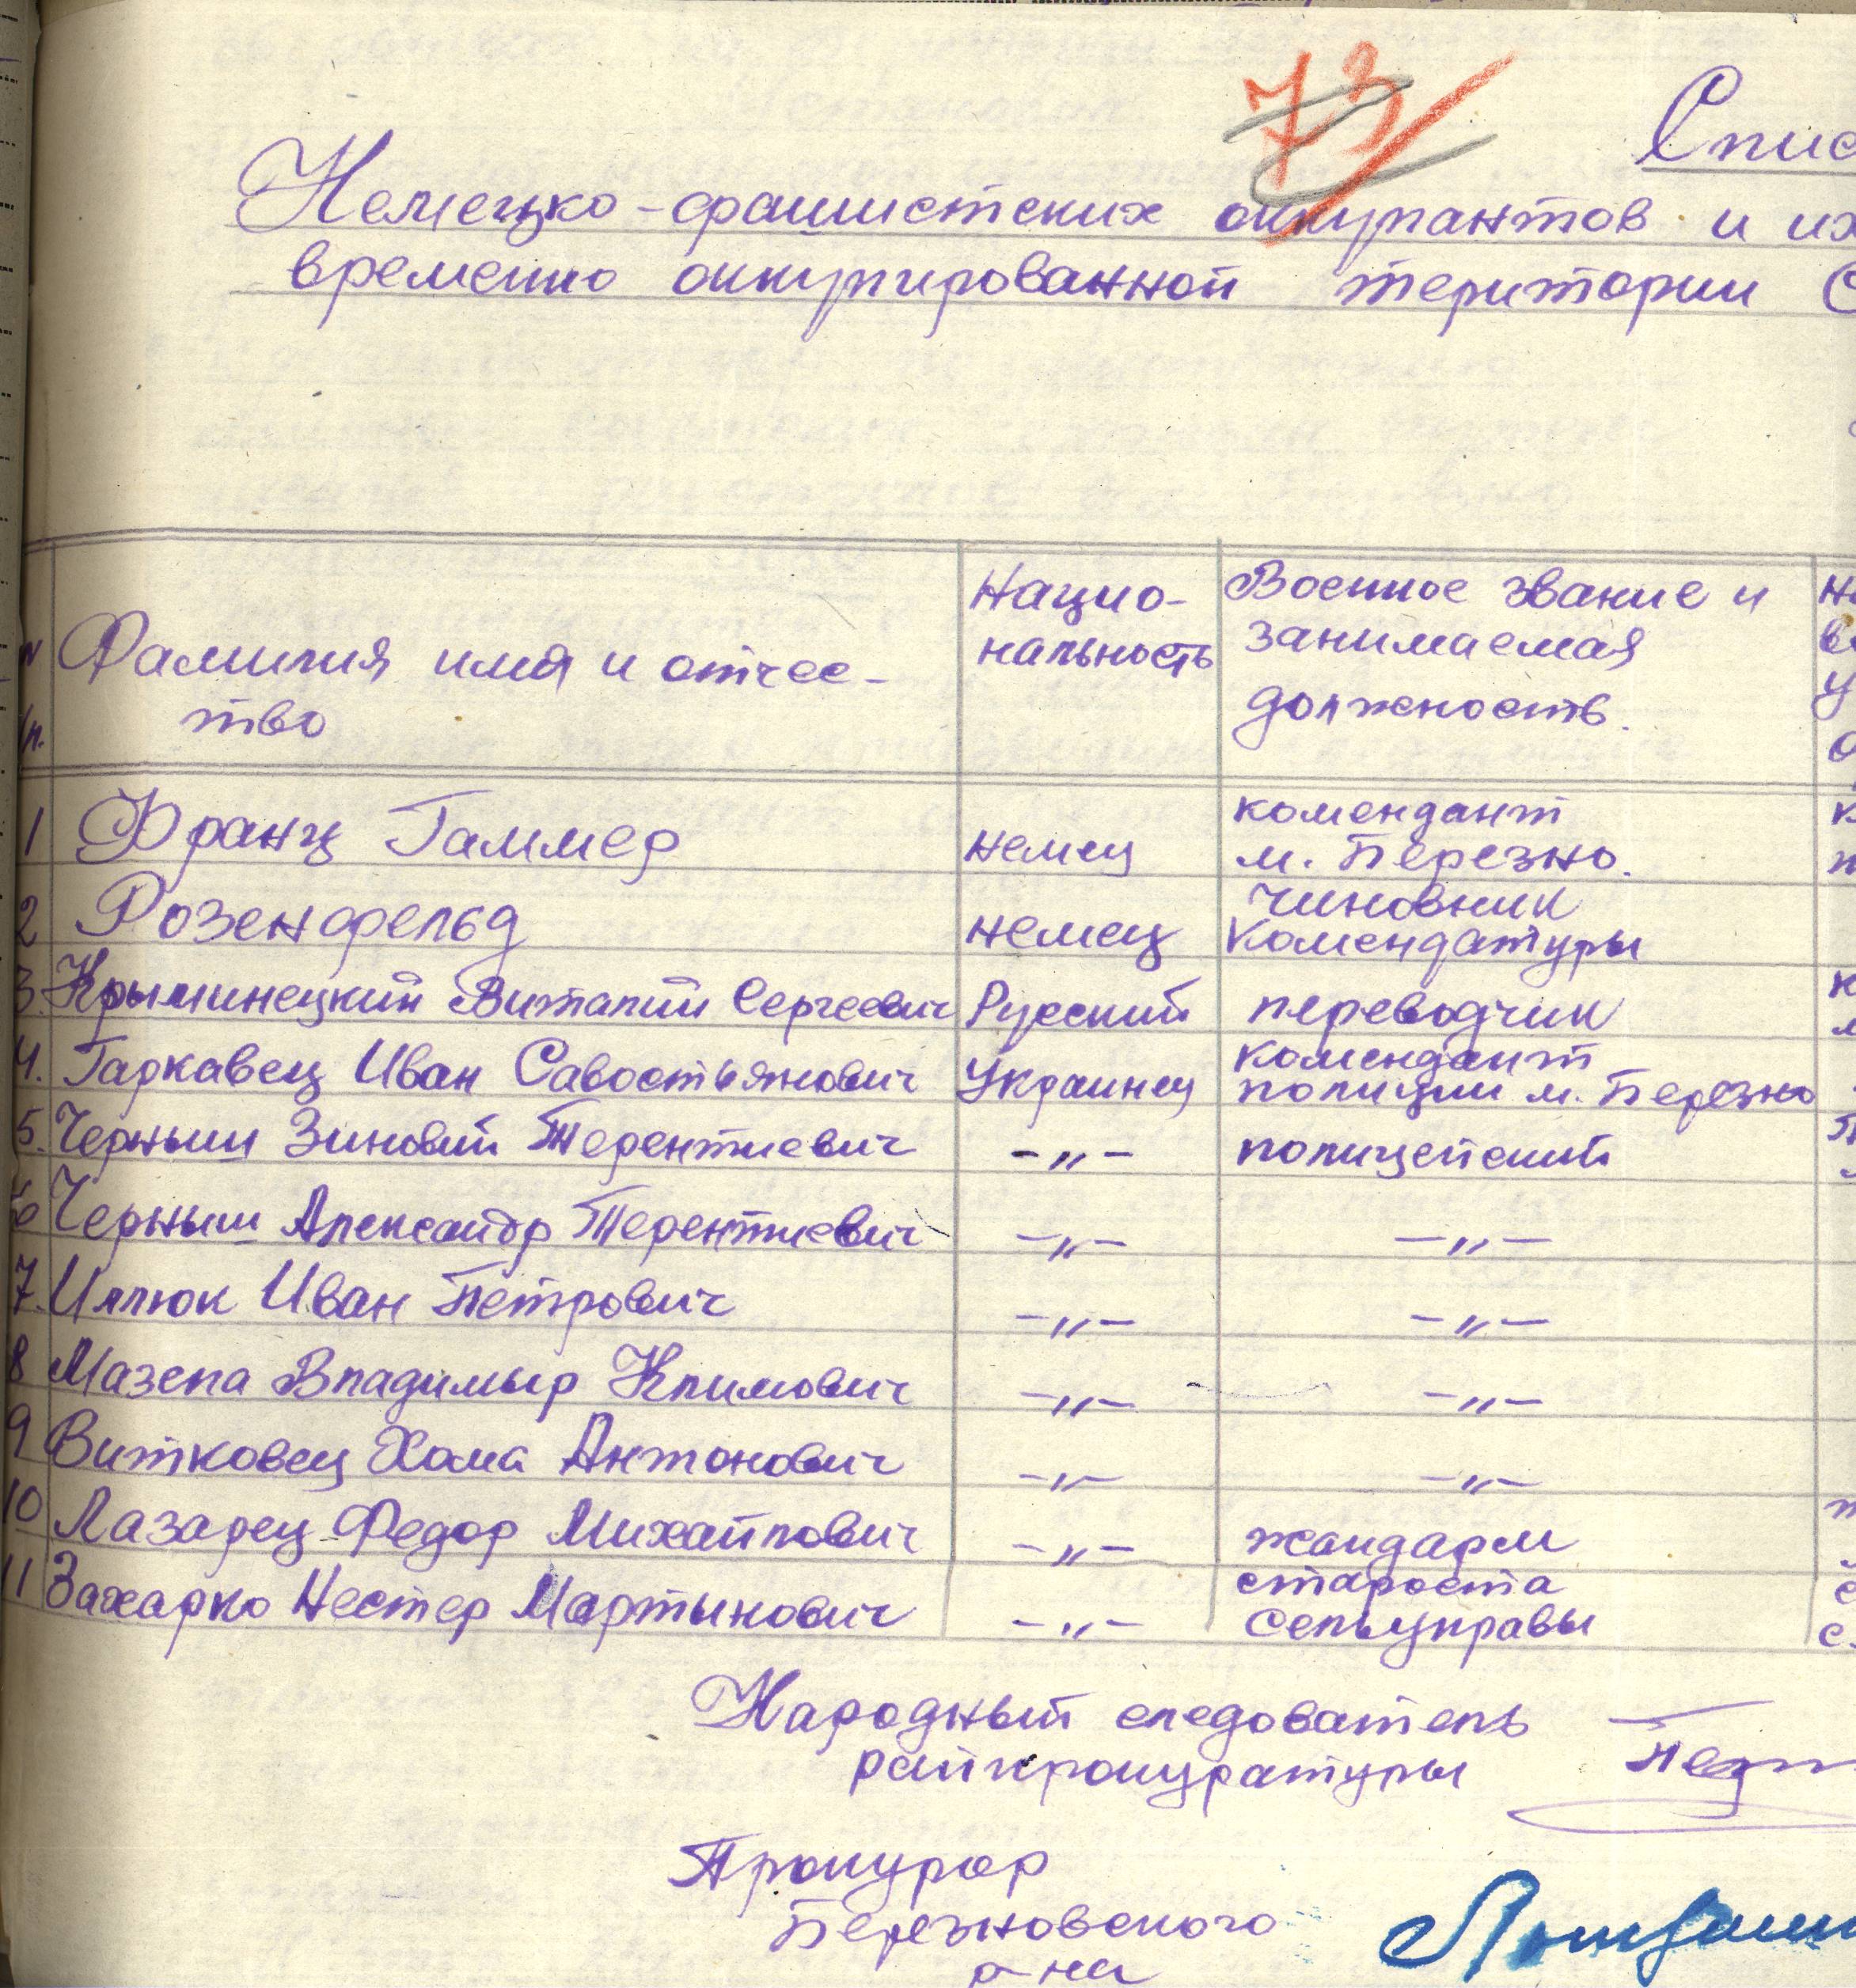 73
Спис
Немецко-фашистских оккупантов и их
временно оккупированной територии С
Нацио-
нальность
Военное звание и
занимаемая
должность.
Фамилия имя и отчес-
тво
1 Франц Гаммер немец комендант
м. Березно.
2 Розенфельд немец чиновник
комендатуры
3. Крыминецкий Виталий Сергеевич Русский переводчик
4. Гаркавец Иван Савостьянович Украинец комендант
полиции м. Березно
5. Черныш Зиновий Терентиевич -„- полицейский
6 Черныш Александр Терентиевич -„- -„-
7. Илюк Иван Петрович -„- -„-
8 Мазепа Владимыр Климович -„- -„-
9 Витковец Хома Антонович -„- -„-
10 Лазарец Федор Михайлович -„- жандарм
11 Захарко Нестер Мартынович -„- староста
сельуправы
Народный следователь
райпрокуратуры
Прокурор
Березновского
р-на